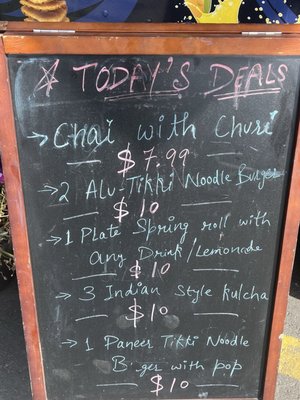 ☆ TODAY'S DEALS
→ Chai with Churi
$7.99
→ 2 Alu-Tikki Noodle Burger
$10
→ 1 Plate Spring roll with
any Drink/Lemonade
$10
→ 3 Indian Style Kulcha
$10
→ 1 Paneer Tikki Noodle
B ger with pop
$10